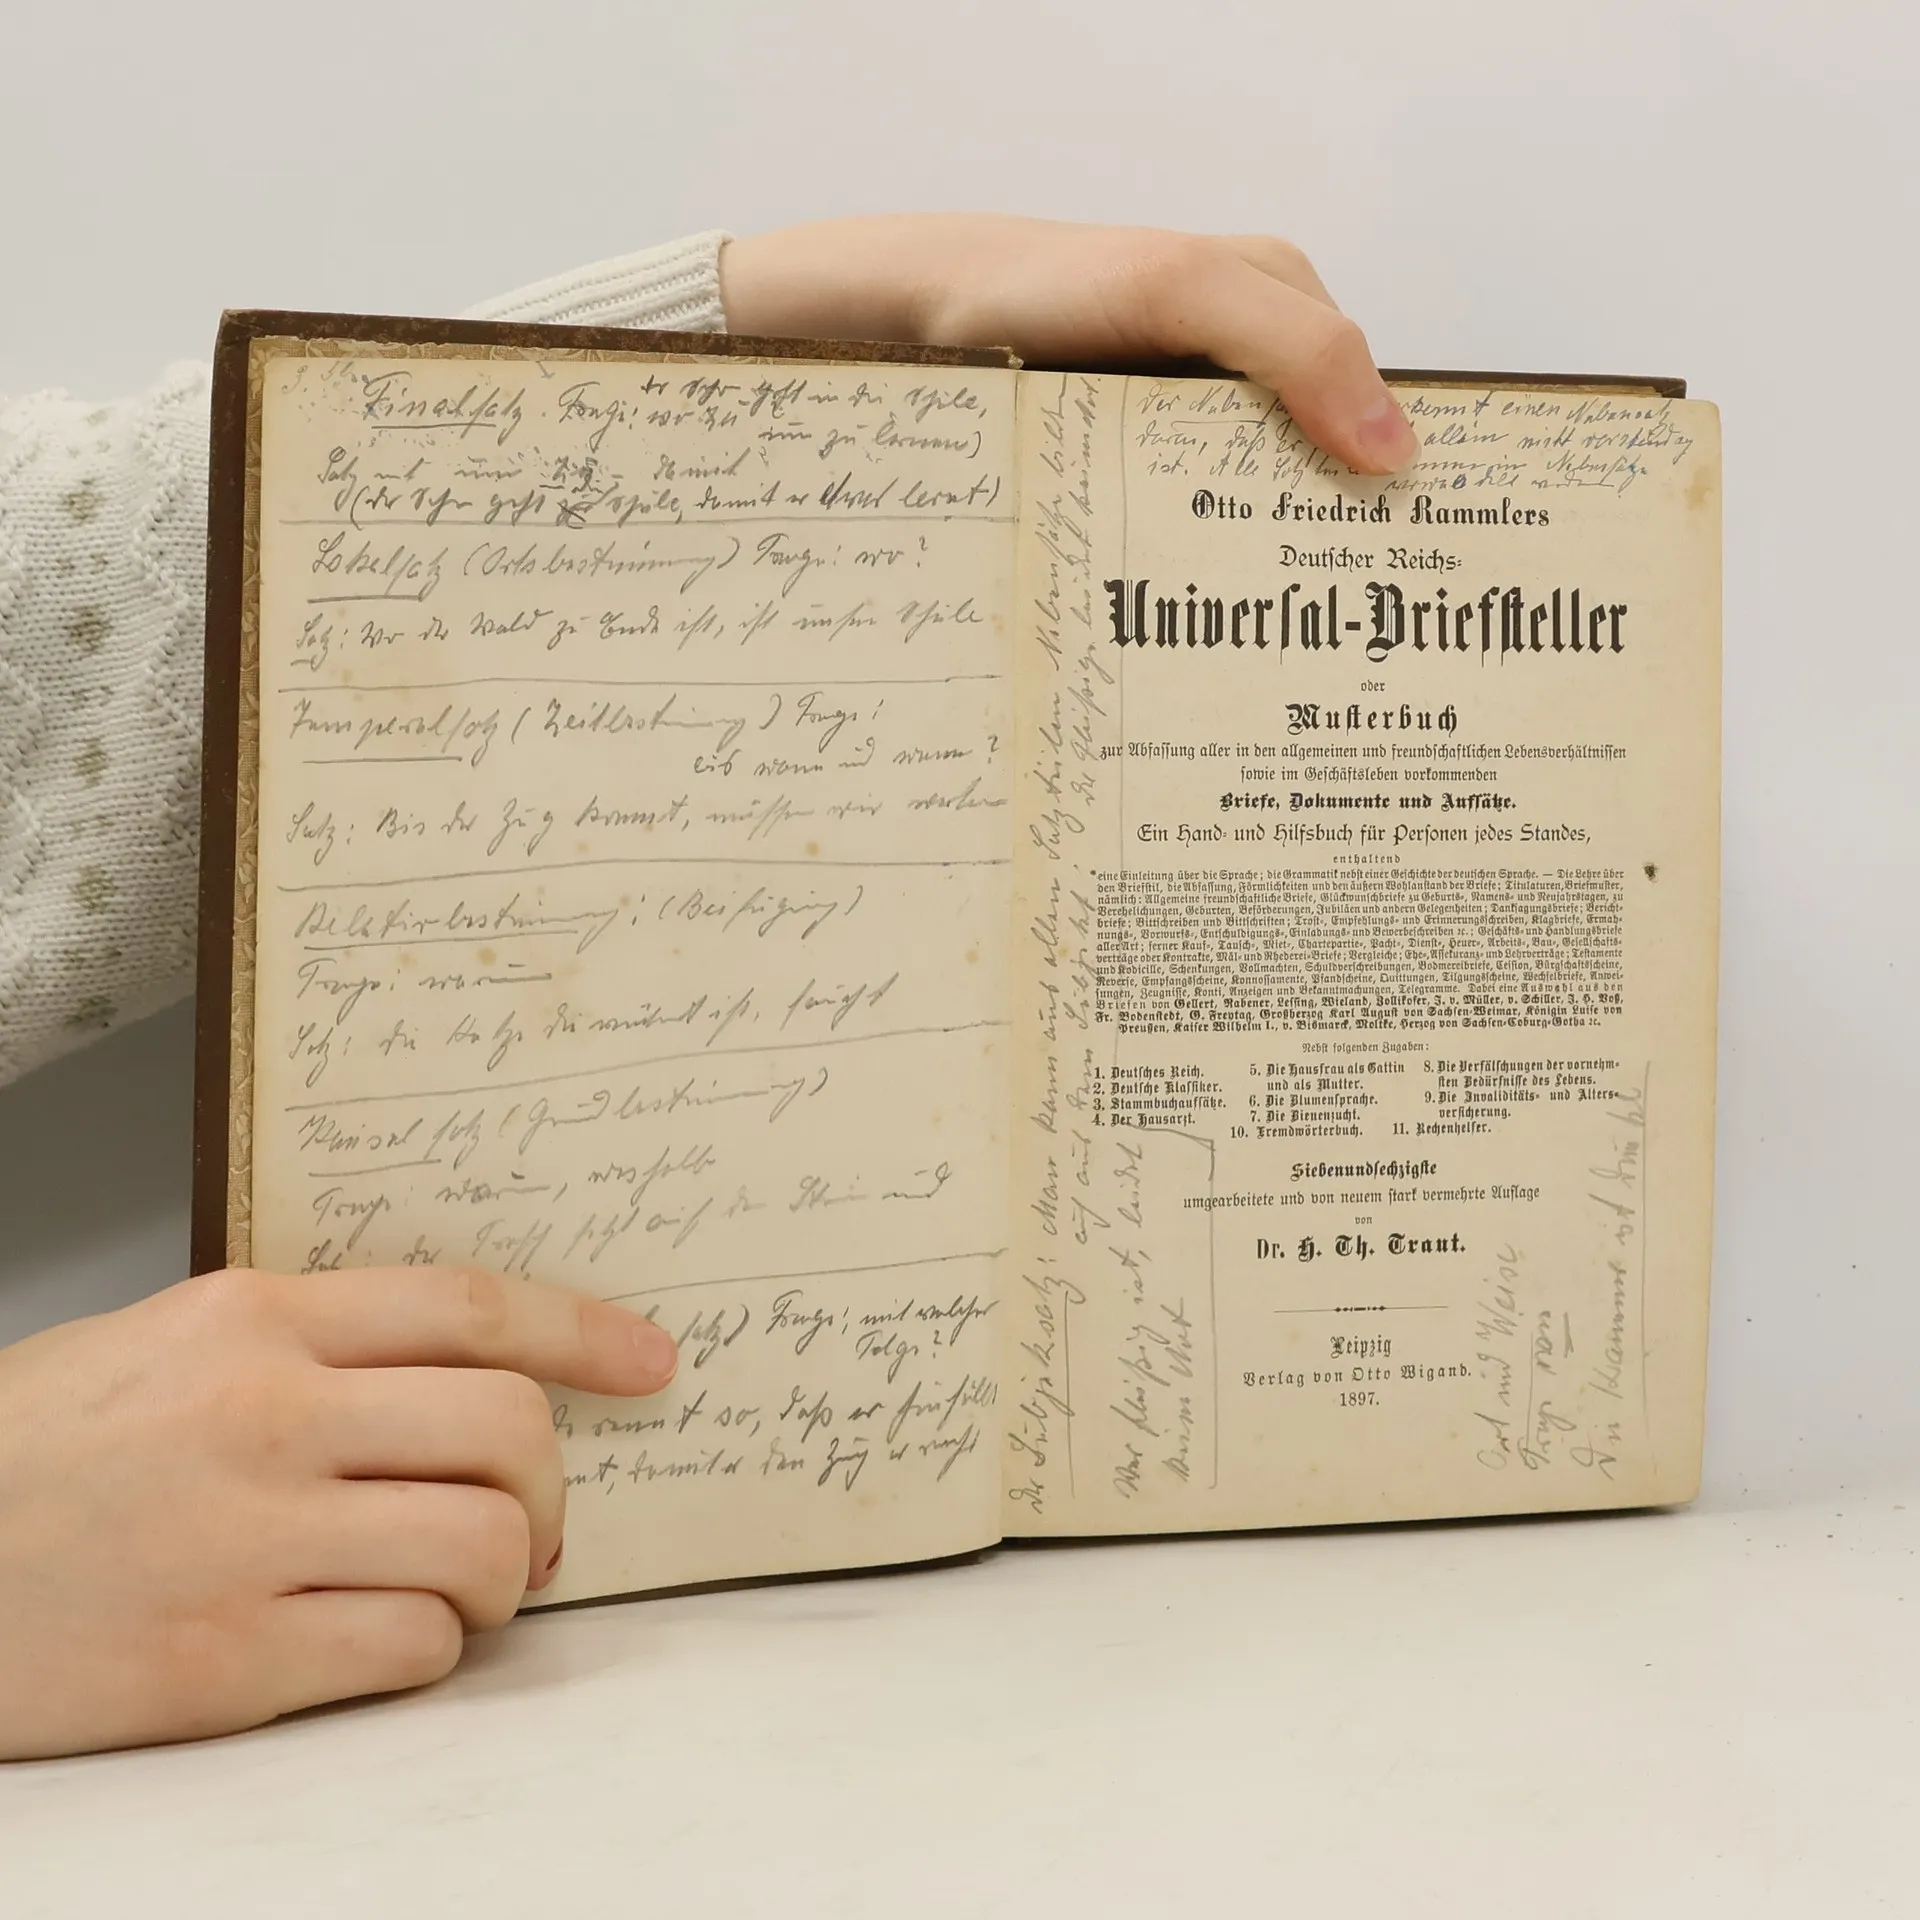 Finalsatz. Frage: wozu
der Sohn geht in die Schule,
um zu lernen)
Satz mit um zu – damit
(der Sohn geht in die Schule, damit er etwas lernt)
Lokalsatz (Ortsbestimmung) Frage: wo?
Satz: Wo der Wald zu Ende ist, ist unsere Schule
Temporalsatz (Zeitbestimmung) Frage:
bis wann und wann?
Satz: Bis der Zug kommt, müssen wir warten
Relativbestimmung: (Beifügung)
Frage: warum
Satz: die Katze die wütend ist, faucht
Kausal satz (Grundbestimmung)
Frage: warum, weshalb
Satz: der Frosch sitzt auf dem Stein und
satz) Frage: mit welcher
Folge?
rennt so, daß er hinfällt
damit er den Zug erreicht
Der Subjektsatz: Man kann aus allen Satzteilen Nebensätze bilden
auch aus dem Subjekt: der Fleißige leidet keine Not.
Wer fleißig ist, leidet
keine Not
Der Nebensatz erkennt einen Nebensatz
daran, daß er allein nicht verständig
ist. Alle Satzteile in Nebensätze
verwandelt werden
Otto Friedrich Rammlers
Deutscher Reichs-
Universal-Briefsteller
oder
Musterbuch
zur Abfassung aller in den allgemeinen und freundschaftlichen Lebensverhältnissen
sowie im Geschäftsleben vorkommenden
Briefe, Dokumente und Aufsätze.
Ein Hand- und Hilfsbuch für Personen jedes Standes,
enthaltend
eine Einleitung über die Sprache; die Grammatik nebst einer Geschichte der deutschen Sprache. — Die Lehre über
den Briefstil, die Abfassung, Förmlichkeiten und den äußern Wohlanstand der Briefe; Titulaturen, Briefmuster,
nämlich: Allgemeine freundschaftliche Briefe, Glückwunschbriefe zu Geburts-, Namens- und Neujahrstagen, zu
Verehelichungen, Geburten, Beförderungen, Jubiläen und andern Gelegenheiten; Danksagungsbriefe; Bericht-
briefe; Bittschreiben und Bittschriften; Trost-, Empfehlungs- und Erinnerungsschreiben, Klagbriefe, Ermah-
nungs-, Vorwurfs-, Entschuldigungs-, Einladungs- und Bewerbeschreiben ꝛc.; Geschäfts- und Handlungsbriefe
aller Art; ferner Kauf-, Tausch-, Miet-, Chartepartie-, Pacht-, Dienst-, Heuer-, Arbeits-, Bau-, Gesellschafts-
verträge oder Kontrakte, Mäl- und Rhederei-Briefe; Vergleiche; Ehe-, Assekuranz- und Lehrverträge; Testamente
und Kodicille, Schenkungen, Vollmachten, Schuldverschreibungen, Bodmereibriefe, Cession, Bürgschaftsscheine,
Reverse, Empfangscheine, Konnossamente, Pfandscheine, Quittungen, Tilgungsscheine, Wechselbriefe, Anwei-
sungen, Zeugnisse, Konti, Anzeigen und Bekanntmachungen, Telegramme. Dabei eine Auswahl aus den
Briefen von Gellert, Rabener, Lessing, Wieland, Zollikofer, J. v. Müller, v. Schiller, J. H. Voß,
Fr. Bodenstedt, G. Freytag, Großherzog Karl August von Sachsen-Weimar, Königin Luise von
Preußen, Kaiser Wilhelm I., v. Bismarck, Moltke, Herzog von Sachsen-Coburg-Gotha ꝛc.
Nebst folgenden Zugaben:
1. Deutsches Reich.
2. Deutsche Klassiker.
3. Stammbuchaufsätze.
4. Der Hausarzt.
5. Die Hausfrau als Gattin
und als Mutter.
6. Die Blumensprache.
7. Die Bienenzucht.
8. Die Verfälschungen der vornehm-
sten Bedürfnisse des Lebens.
9. Die Invaliditäts- und Alters-
versicherung.
10. Fremdwörterbuch.
11. Rechenhelfer.
Siebenundsechzigste
umgearbeitete und von neuem stark vermehrte Auflage
von
Dr. H. Th. Traut.
Leipzig
Verlag von Otto Wigand.
1897.
Art und Weise
Die Kammer ist